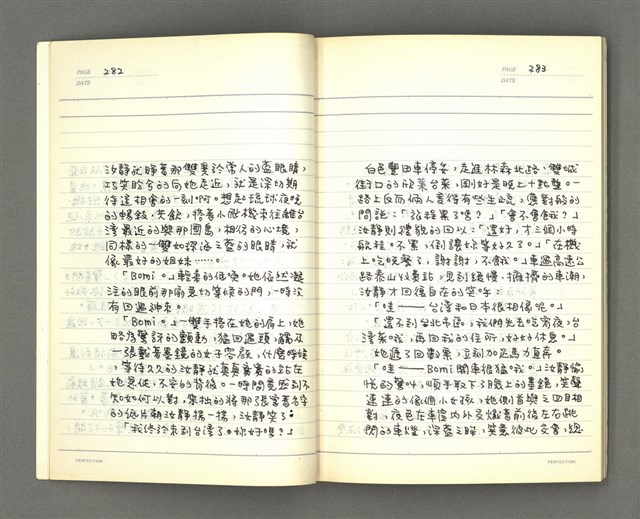 PAGE 282
DATE
汝靜就睜著那雙異於常人的藍眼睛,
巧笑盼兮的向她走近,就是深切期
待這相會的一刻啊。想起琉球夜吃
的暢談、共飲,搭著小飛機來往離台
灣最近的與那國島,相仿的心境,
同樣的一雙如深海之藍的眼睛,就
像最好的姐妹……。
「Bomi。」輕柔的低喚。她依然凝
注的眼前那扇急切等候的門,一時沒
有回過神來。
「Bomi。」一雙手搭在她的肩上,她
略為驚訝的顫動,猛回過頭,觸及
一張戴著墨鏡的女子容顏,什麼時候
,等待久久的汝靜就真真實實的站在
她焦促、不安的背後。一時間竟感到不
知如何以對,笨拙的將那張寫著名字
的紙片朝汝靜揚一揚,汝靜笑了:
「我終於來到台灣了。妳好嗎?」
PERFECTION
PAGE 283
DATE
白色豐田車停妥,走進林森北路、雙城
街口的欣葉台菜,剛好是晚上十點整。一
路上反而倆人變得有些生疏,應對般的
問說:「旅程累了嗎?」「會不會餓?」
汝靜則禮貌的回以:「還好,才三個小時
航程,不累,倒讓妳等好久了。」「在機
上吃晚餐了,謝謝,不餓。」車過高速公
路泰山收費站,見到緩慢、擁擠的車潮,
汝靜才回復自在的笑呼:
「哇——台灣和日本很相像呢。」
「還不到台北市區,我們先去吃宵夜,台
灣菜哦,再回我的住所,好好休息。」
她遞了回數票,立刻加足馬力直奔。
「哇——Bomi開車很猛哦。」汝靜愉
悅的驚叫,順手取下了臉上的墨鏡,笑聲
連連的像個小女孩,她側首與之四目相
對,夜色在車窗內外交熾著前後左右跳
閃的車燈,深藍之眸,笑意彼此交會,總
PERFECTION